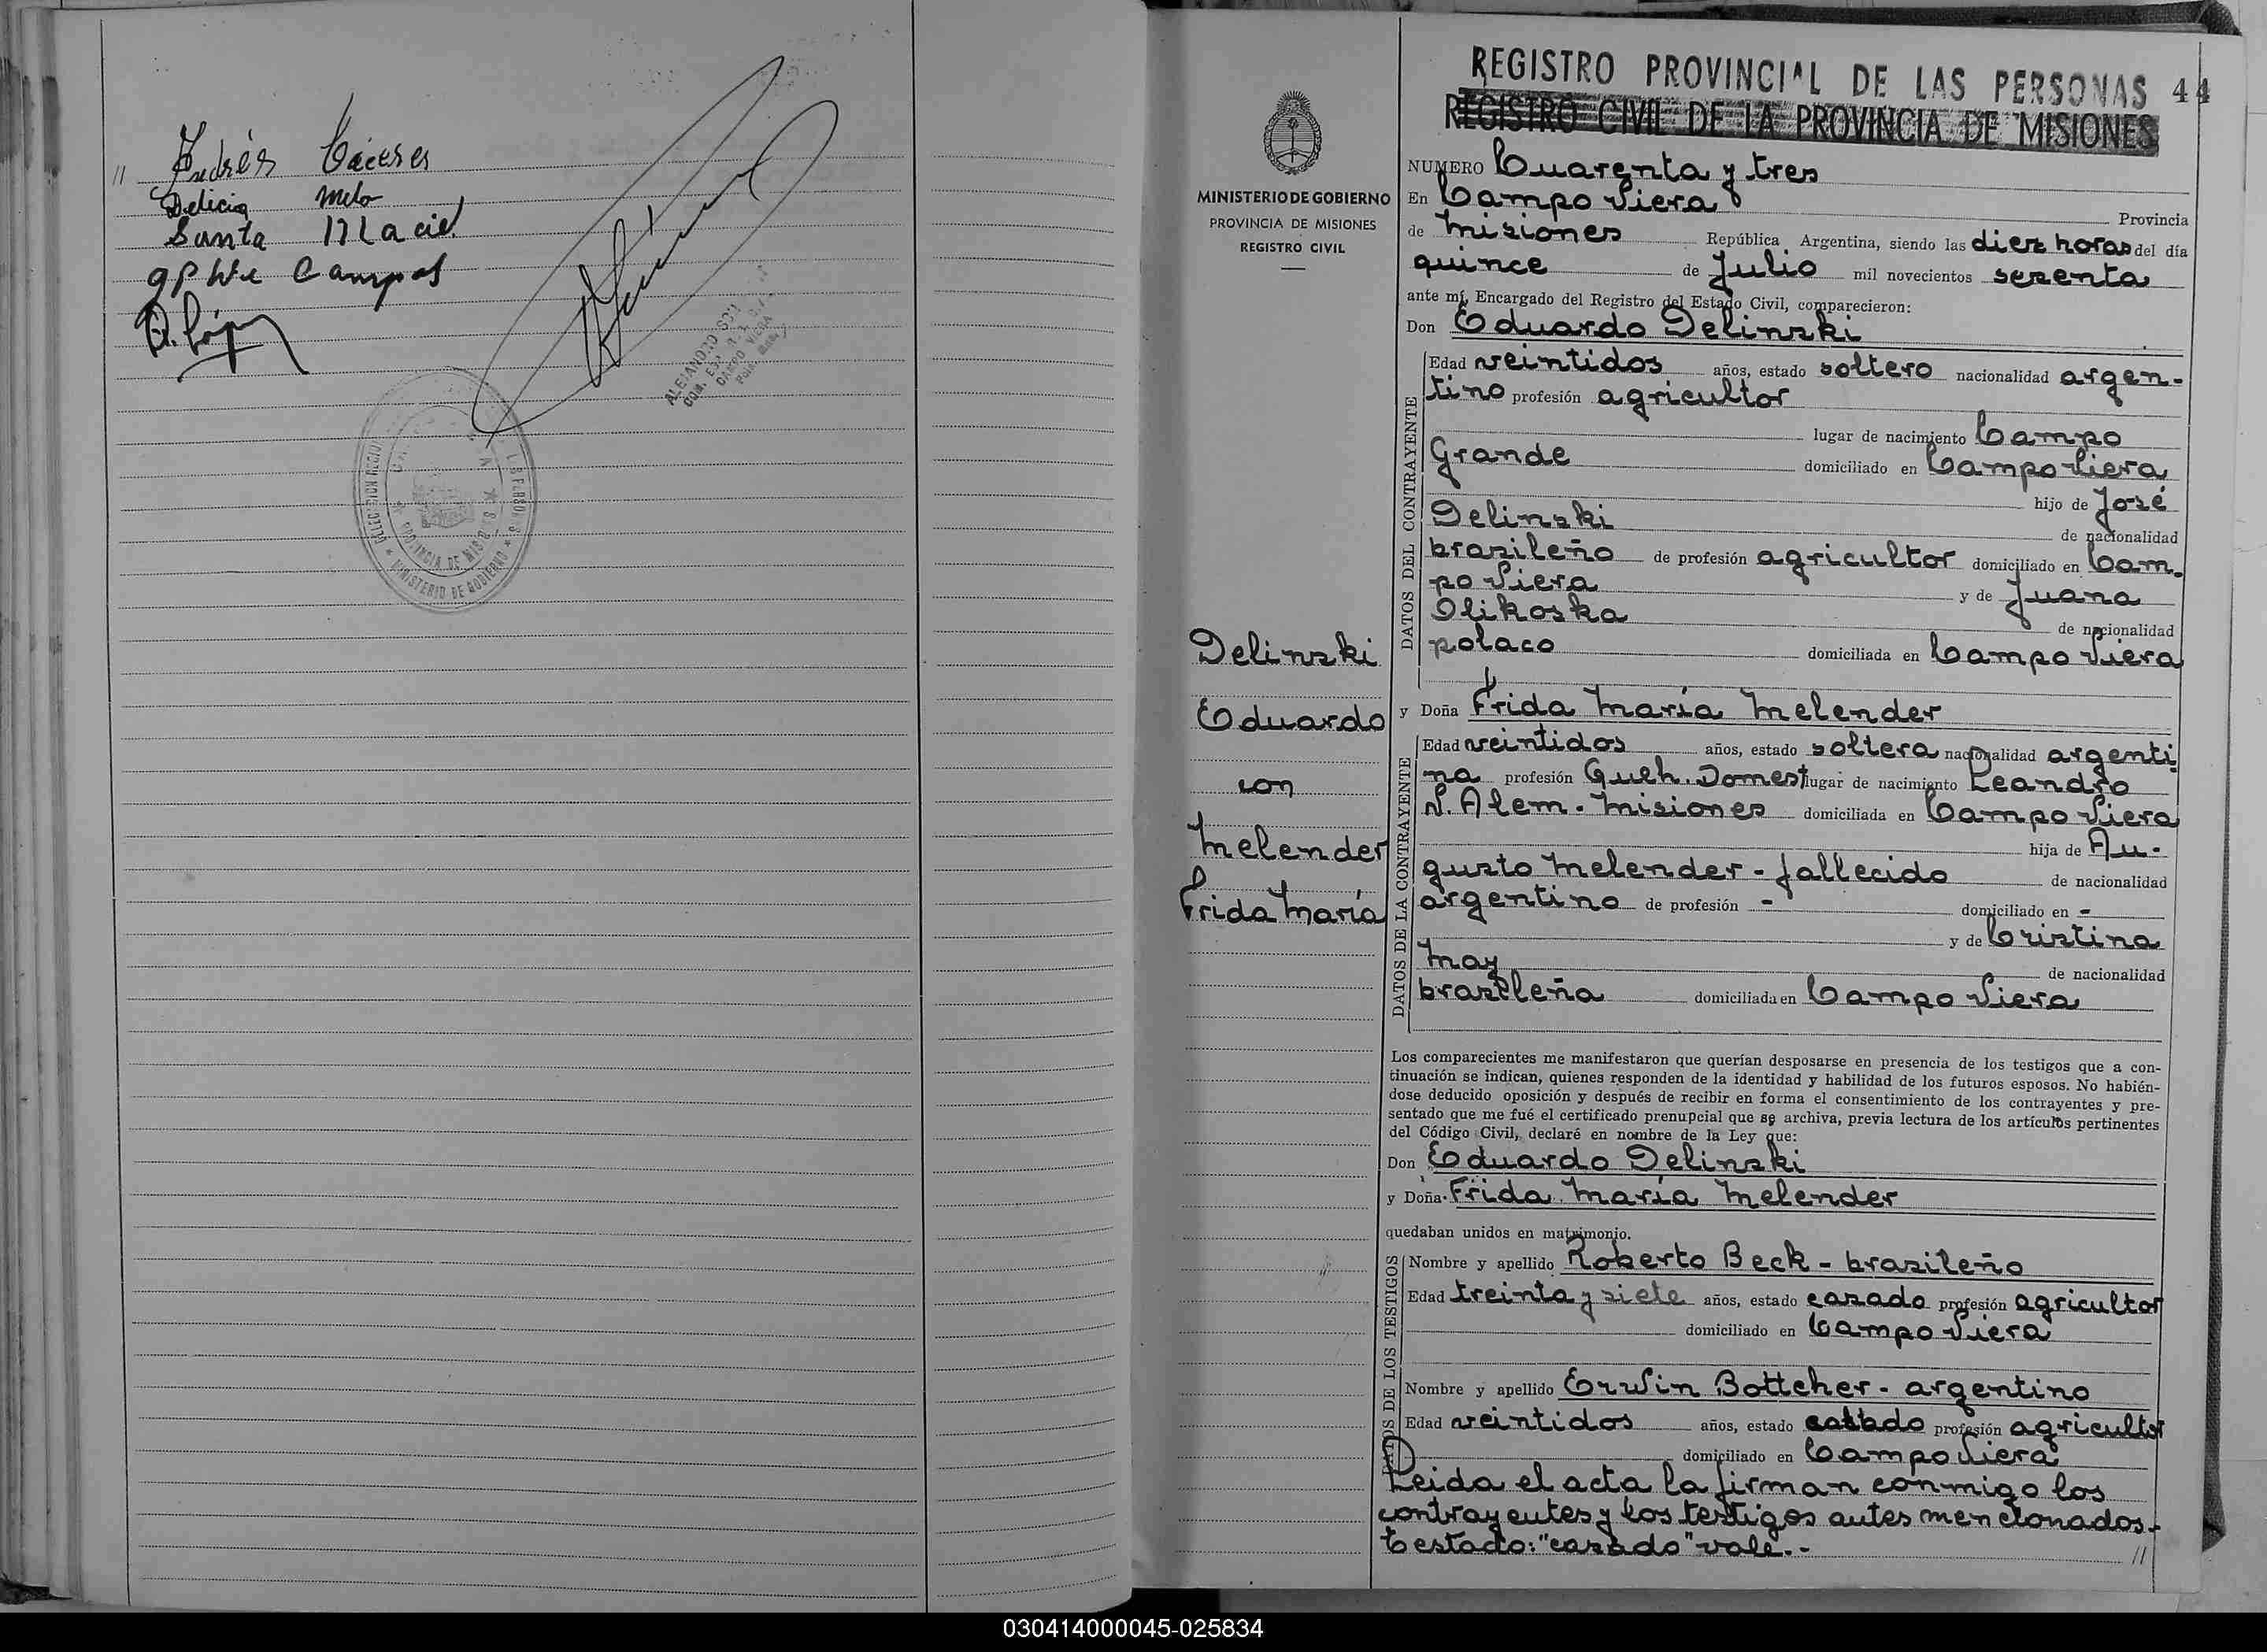 // Andrés Cáceres
Delicia Melo
Santa
Campos
REGISTRO PROVINCIAL DE LAS PERSONAS 44
REGISTRO CIVIL DE LA PROVINCIA DE MISIONES
MINISTERIO DE GOBIERNO
PROVINCIA DE MISIONES
REGISTRO CIVIL
NUMERO Cuarenta y tres
En Campo Viera Provincia
de Misiones República Argentina, siendo las diez horas del día
quince de Julio mil novecientos sesenta
ante mí, Encargado del Registro del Estado Civil, comparecieron:
Don Eduardo Delinski
DATOS DEL CONTRAYENTE
Edad veintidos años, estado soltero nacionalidad argen-
tino profesión agricultor
lugar de nacimiento Campo
Grande domiciliado en Campo Viera
hijo de José
Delinski de nacionalidad
brasileño de profesión agricultor domiciliado en Cam-
po Viera y de Juana
Olikoska de nacionalidad
polaco domiciliada en Campo Viera
Delinski
Eduardo
con
Melender
Frida María
y Doña Frida María Melender
DATOS DE LA CONTRAYENTE
Edad veintidos años, estado soltera nacionalidad argenti-
na profesión Queh. Domest lugar de nacimiento Leandro
N. Alem - Misiones domiciliada en Campo Viera
hija de Au-
gusto Melender - fallecido de nacionalidad
argentino de profesión - domiciliado en -
y de Cristina
May de nacionalidad
brasileña domiciliada en Campo Viera
Los comparecientes me manifestaron que querían desposarse en presencia de los testigos que a con-
tinuación se indican, quienes responden de la identidad y habilidad de los futuros esposos. No habién-
dose deducido oposición y después de recibir en forma el consentimiento de los contrayentes y pre-
sentado que me fué el certificado prenupcial que se archiva, previa lectura de los artículos pertinentes
del Código Civil, declaré en nombre de la Ley que:
Don Eduardo Delinski
y Doña Frida María Melender
quedaban unidos en matrimonio.
DATOS DE LOS TESTIGOS
Nombre y apellido Roberto Beck - brasileño
Edad treinta y siete años, estado casado profesión agricultor
domiciliado en Campo Viera
Nombre y apellido Erwin Bottcher - argentino
Edad veintidos años, estado casado profesión agricultor
domiciliado en Campo Viera
Leida el acta la firman conmigo los
contrayentes y los testigos antes mencionados.-
Testado: "casado" vale.-
//
030414000045-025834